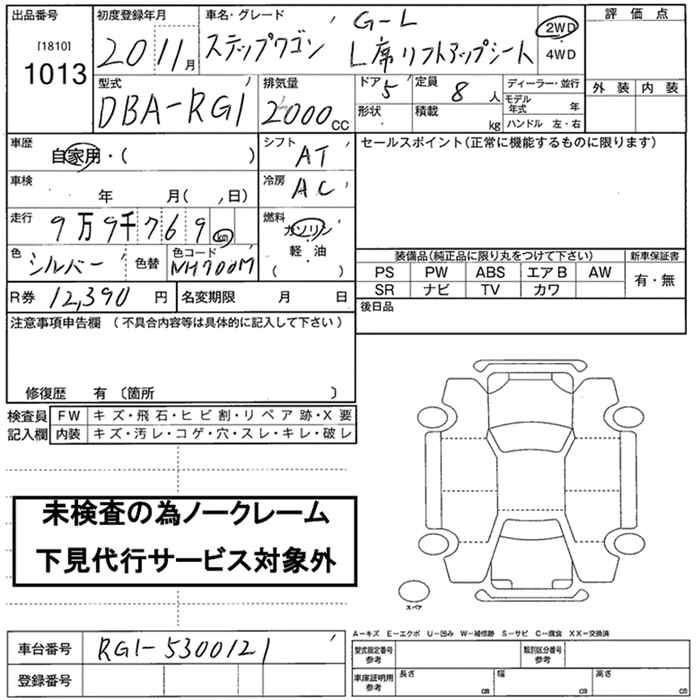 出品番号 初度登録年月 車名・グレード 評価点
[1810]
1013
20 11月 ステップワゴン G-L
L席リフトアップシート
2WD
4WD
外装 内装
型式 排気量 ドア 定員 ディーラー・並行
DBA-RG1 2000CC 5 8人
モデル年式 年
形状 積載 kg ハンドル 左・右
車歴 自家用・( )
シフト AT
セールスポイント(正常に機能するものに限ります)
車検 年 月( , 日)
冷房 AC
走行 9万9千769km
燃料 ガソリン
軽・油
( )
色 シルバー 色替 色コード NH700M
装備品(純正品に限り丸をつけて下さい) 新車保証書
PS PW ABS エアB AW 有・無
SR ナビ TV カワ
R券 12,390円 名変期限 月 日
後日品
注意事項申告欄 (不具合内容等は具体的に記入して下さい)
修復歴 有 〔箇所 〕
検査員 FW キズ・飛石・ヒビ割・リペア跡・X要
記入欄 内装 キズ・汚レ・コゲ・穴・スレ・キレ・破レ
未検査の為ノークレーム
下見代行サービス対象外
スペア
A-キズ E-エクボ U-凹み W-補修跡 S-サビ C-腐食 XX-交換済
車台番号 RG1-5300121
型式指定番号 参考 類別区分番号 参考
登録番号
車庫証明用 参考 長さ cm 幅 cm 高さ cm